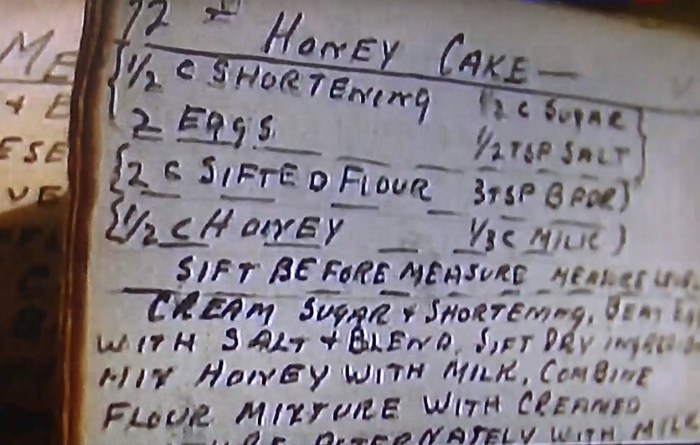 72 - HONEY CAKE -
1/2 C SHORTENING 1/2 C SUGAR
2 EGGS 1/2 TSP SALT
2 C SIFTED FLOUR 3 TSP B PDR
1/2 C HONEY 1/3 C MILK
SIFT BEFORE MEASURE MEASURE
CREAM SUGAR & SHORTENING, BEAT
WITH SALT & BLEND. SIFT DRY
MIX HONEY WITH MILK, COMBINE
FLOUR MIXTURE WITH CREAMED
ALTERNATELY WITH MILK
ME
& E
ESE
VE